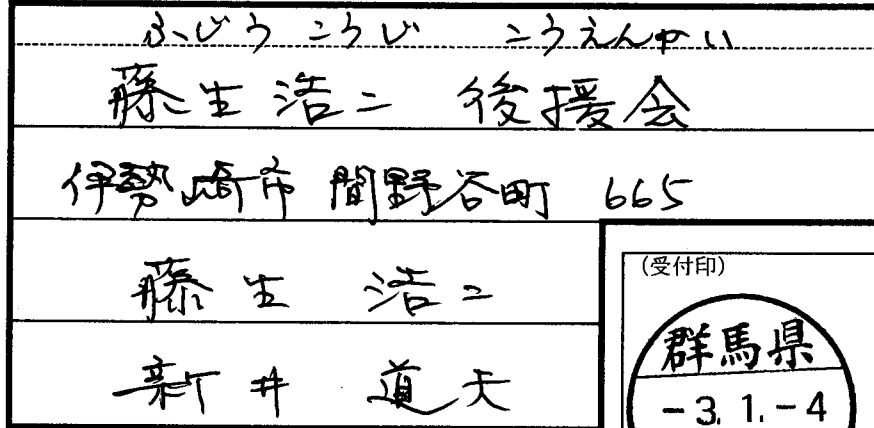 ふじう こうじ こうえんかい
藤生浩二 後援会
伊勢崎市 間野谷町 665
藤生 浩二
新井 道夫
(受付印)
群馬県
-3.1.-4